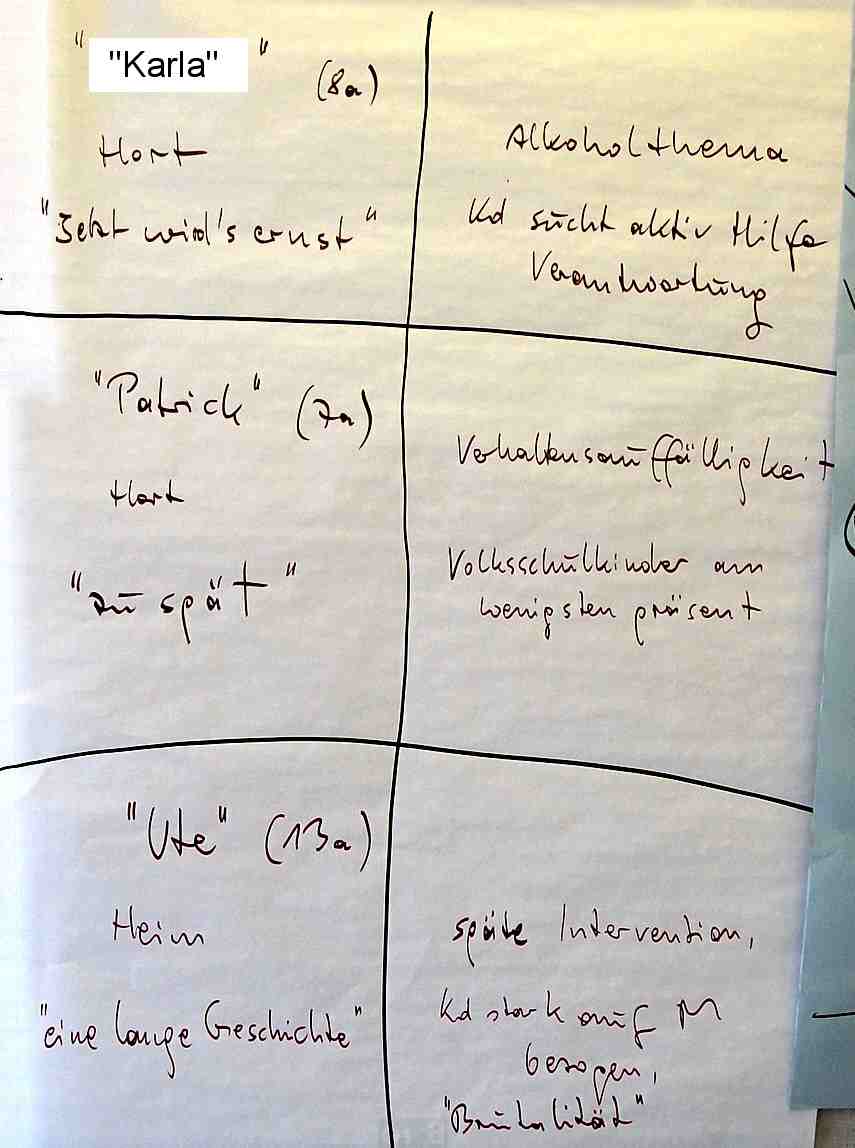 " "Karla" " (8a)
Hort
"Jetzt wird's ernst"
Alkoholthema
Kd sucht aktiv Hilfe
Verantwortung
"Patrick" (7a)
Hort
"zu spät"
Verhaltensauffälligkeit
Volksschulkinder am
wenigsten präsent
"Ute" (13a)
Heim
"eine lange Geschichte"
späte Intervention,
Kd stark auf M
bezogen,
"Brutalität"